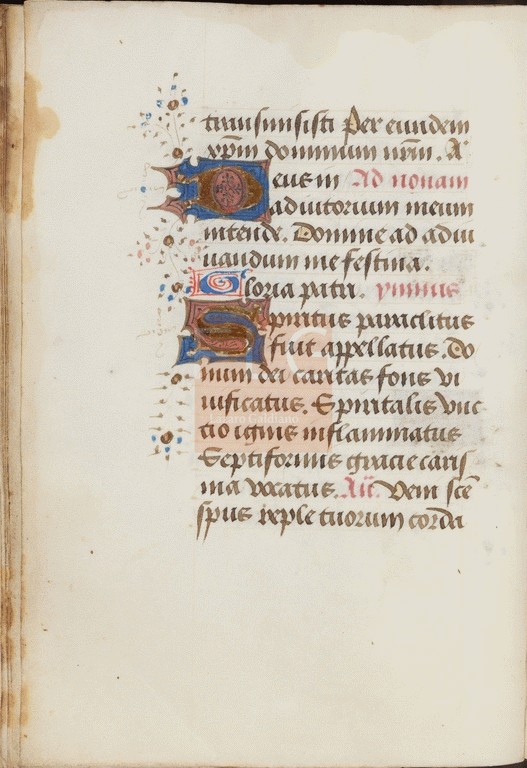 tiuusimsisti Per eundem
xp̄m dominum nr̄m. A
Deus in Ad nonam
adiutorium meum
intende. Domine ad adiu
uandum me festina.
Gloria patri. ymnus
Spiritus paraclitus
fuit appellatus. Do
num dei caritas fons vi
uificatus. Spiritalis unc
tio ignis inflammatus
Septiformis gracie caris
ma vocatus. Añ. Veni sce
sp̄us reple tuorum corda
Lázaro Galdiano